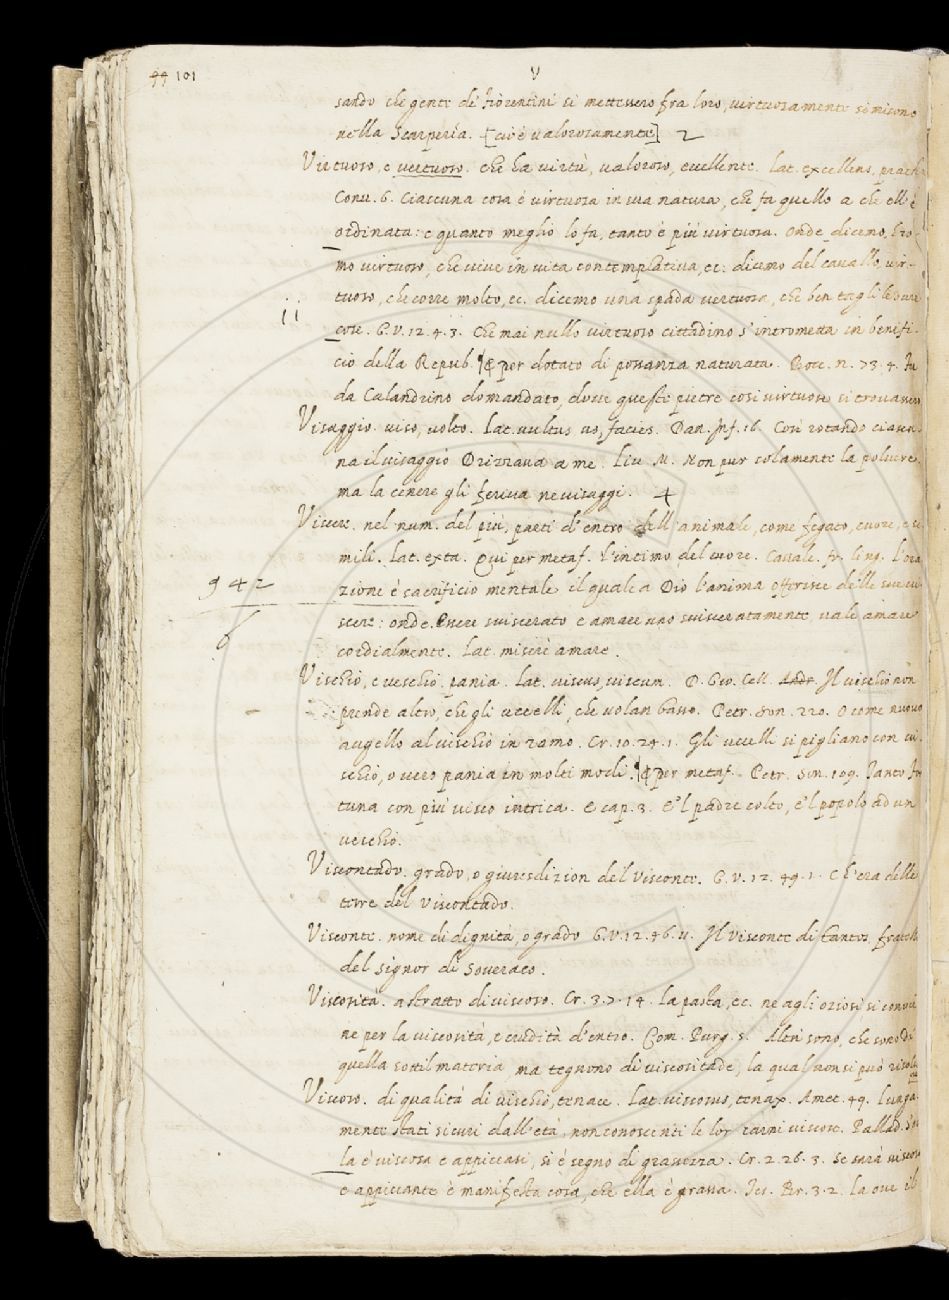 44 101
V
sando che gente de' fiorentini si mettessero fra loro, virtuosamente si misono
nella Scarperia. [cioè valorosamente] 2
Virtuoso, e vertuoso. che ha virtù, valoroso, eccellente. Lat. excellens,
Conv. 6. Ciascuna cosa è virtuosa in sua natura, che fa quello a che ell' è
ordinata: e quanto meglio lo fa, tanto è più virtuosa. Onde diceno,
mo virtuoso, che vive in vita contemplativa, ec. dicemo del cavallo, vir-
tuoso, che corre molto, ec. dicemo una spada vertuosa, che ben tagli le dure
ii
cose. G. V. 12. 4. 3. Che mai nullo virtuoso cittadino s'intrometta in benifi-
cio della Repub. ¶ per dotato di possanza naturata. Bocc. n. 73. 4. Fu
da Calandrino domandato, dove queste pietre così virtuose si trovassero
Visaggio. viso, volto. Lat. vultus us, facies. Dan. Inf. 16. Così rotando ciascu-
na il visaggio Drizzava a me. Liv. M. Non pur solamente la polvere,
ma la cenere gli feriva ne visaggi. 4
Viscere. nel num. del più, parti d'entro dell'animale, come fegato, cuore, e si
mili. Lat. exta. Qui per metaf. l'intimo del cuore. Cavalc. fr. ling. L'ora
942
zione è sacrificio mentale il quale a Dio l'anima offerisce delle sue vi
scere: onde. Essere sviscerato e amare uno svisceratamente vale amare
6
cordialmente. Lat. miserè amare.
Vischio, e veschio. pania. Lat. viscus, viscum. D. Gio. Cell. Il vischio non
prende altro, che gli uccelli, che volan basso. Petr. Son. 220. O come nuovo
augello al vischio in ramo. Cr. 10. 24. 1. Gli uccelli si pigliano con vi
schio, o vero pania in molti modi. ¶ per metaf. Petr. Son. 109. Tanto
tuna con più visco intrica. E cap. 3. E'l padre colto, e'l popolo ad un
veschio.
Viscontado. grado, o giuresdizion del Visconte. G. V. 12. 49. 1. Ch'era delle
terre del Viscontado.
Visconte. nome di dignità, o grado G. V. 12. 46. Il Visconte di fratello
del Signor di Soveraco.
Viscosità. astratto di viscoso. Cr. 3. 7. 14. La pasta, ec. ne agli oziosi si convie
ne per la viscosità, e crudità d'entro. Com. Purg. 5. Altri sono, che sono di
quella sottil materia, ma tegnono di viscositade, la qual non si può
Viscoso. di qualità di vischio, tenace. Lat. viscosus, tenax. Amet. 49. Lunga
mente stati sicuri dall'età, non conoscenti le lor carni viscose. Pallad.
la è viscosa e appiccasi, si è segno di grassezza. Cr. 2. 26. 3. Se sarà viscosa
e appiccante è manifesta cosa, che ella è grassa. Tes. Br. 3. 2. La ove il